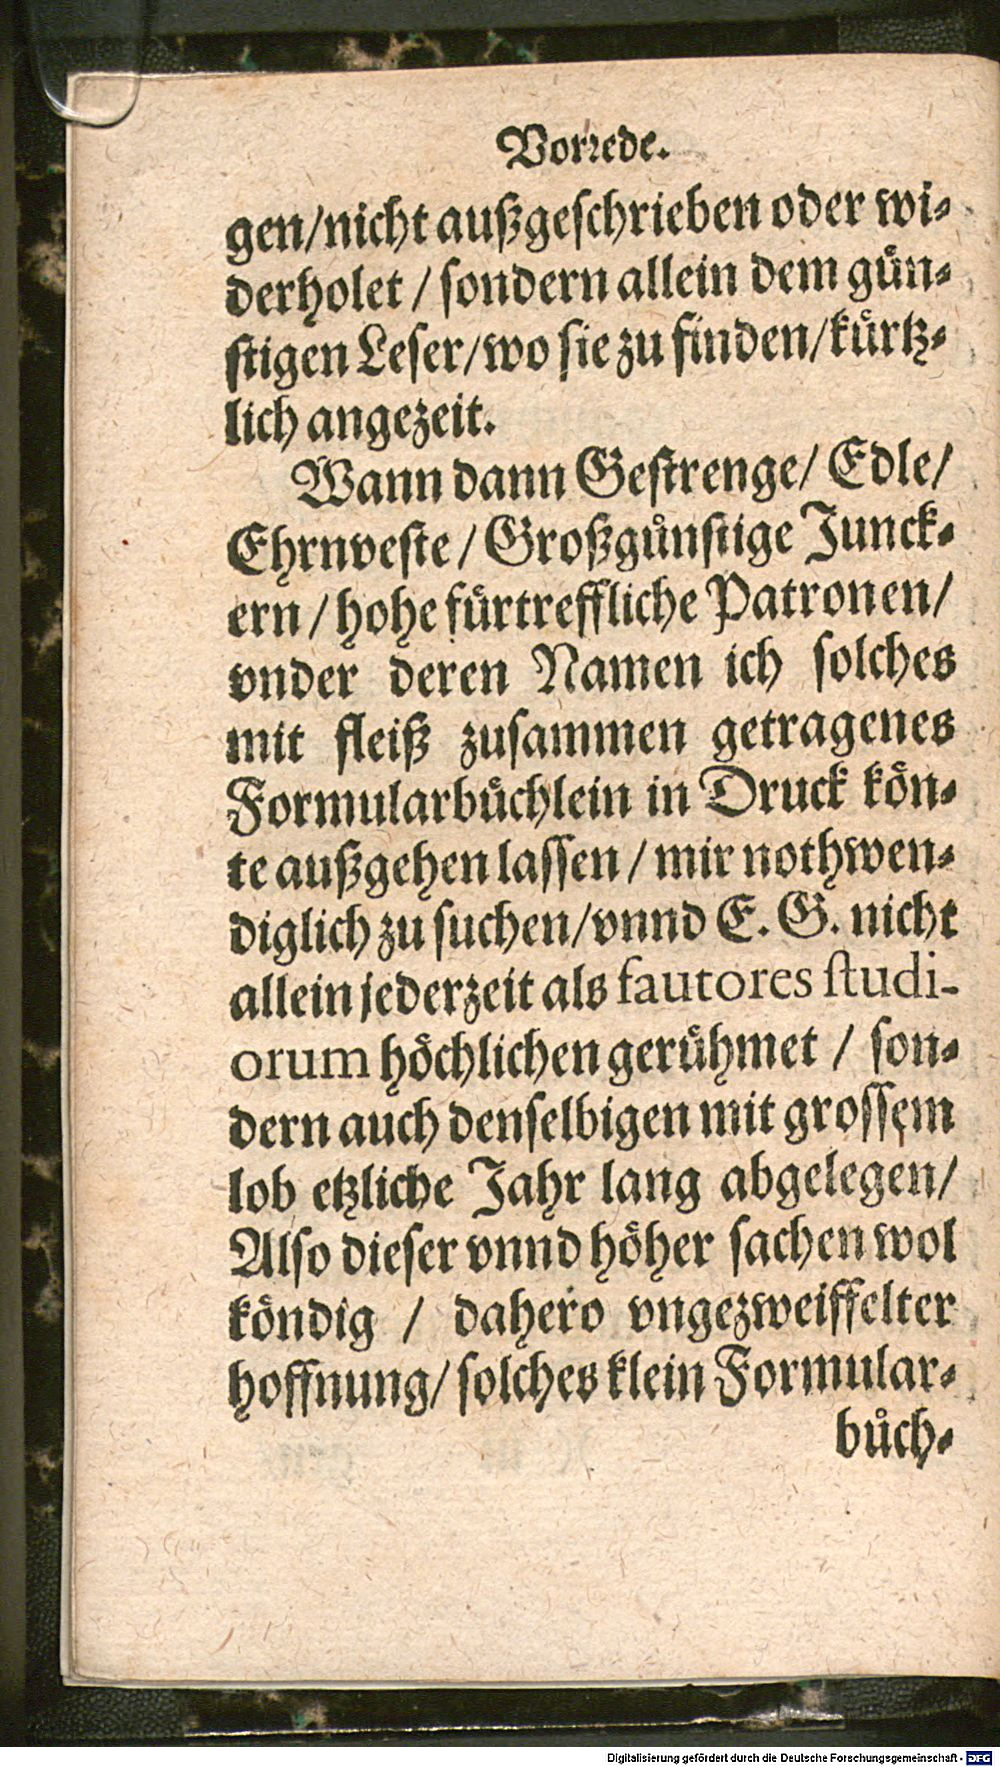 Vorꝛede.
gen/nicht außgeſchrieben oder wi⸗
derholet / ſondern allein dem guͤn⸗
ſtigen Leſer/wo ſie zu finden/kuͤrtz⸗
lich angezeit.
Wann dann Geſtrenge/ Edle/
Ehrnveſte / Großguͤnſtige Junck⸗
ern / hohe fuͤrtreffliche Patronen/
vnder deren Namen ich ſolches
mit fleiß zuſammen getragenes
Formularbuͤchlein in Druck koͤn⸗
te außgehen laſſen / mir nothwen⸗
diglich zu ſuchen/vnnd E. G. nicht
allein jederzeit als fautores ſtudi-
orum hoͤchlichen geruͤhmet / ſon⸗
dern auch denſelbigen mit groſſem
lob etzliche Jahr lang abgelegen/
Alſo dieſer vnnd hoͤher ſachen wol
koͤndig / dahero vngezweiffelter
hoffnung/ ſolches klein Formular⸗
buͤch⸗
Digitalisierung gefördert durch die Deutsche Forschungsgemeinschaft - DFG